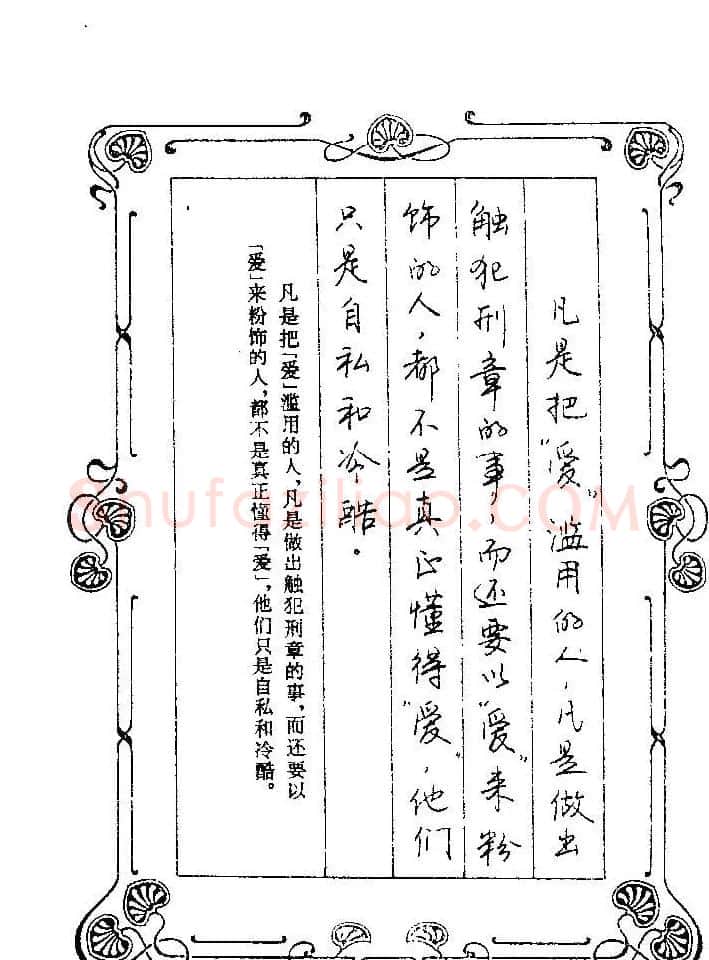 凡是把“爱”滥用的人,凡是做出
触犯刑章的事,而还要以“爱”来粉
饰的人,都不是真正懂得“爱”,他们
只是自私和冷酷。
凡是把「爱」滥用的人,凡是做出触犯刑章的事,而还要以
「爱」来粉饰的人,都不是真正懂得「爱」,他们只是自私和冷酷。
Shufaziliao.COM